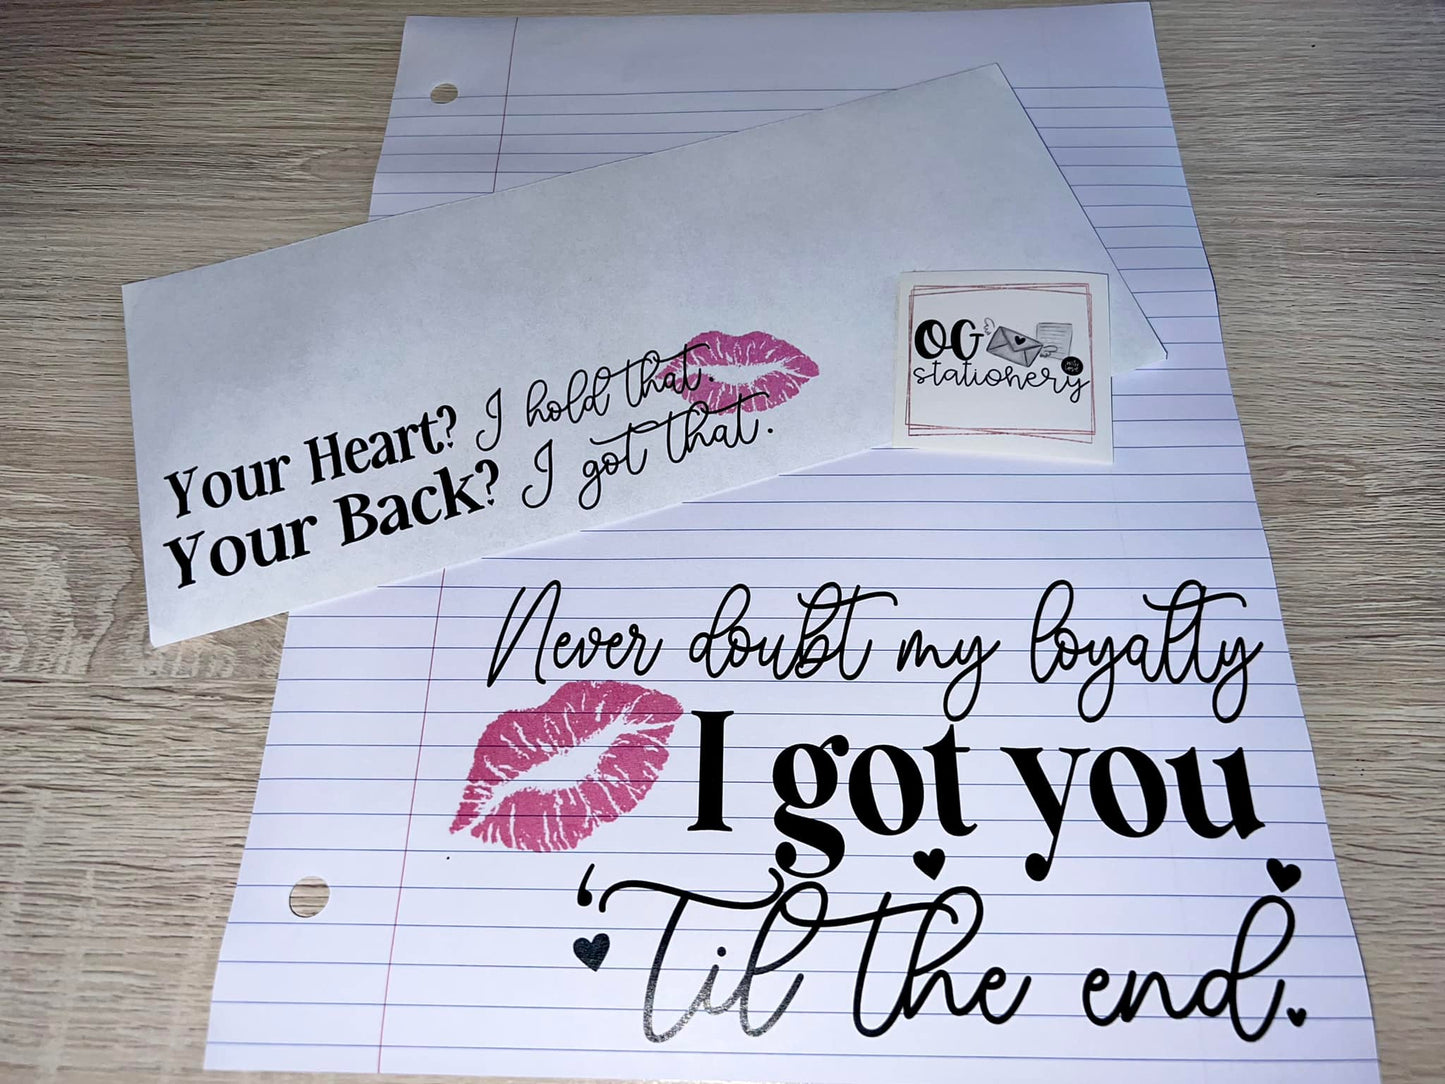 Your Heart? I hold that.
Your Back? I got that.
OG
stationery
Never doubt my loyalty
I got you
'til the end.